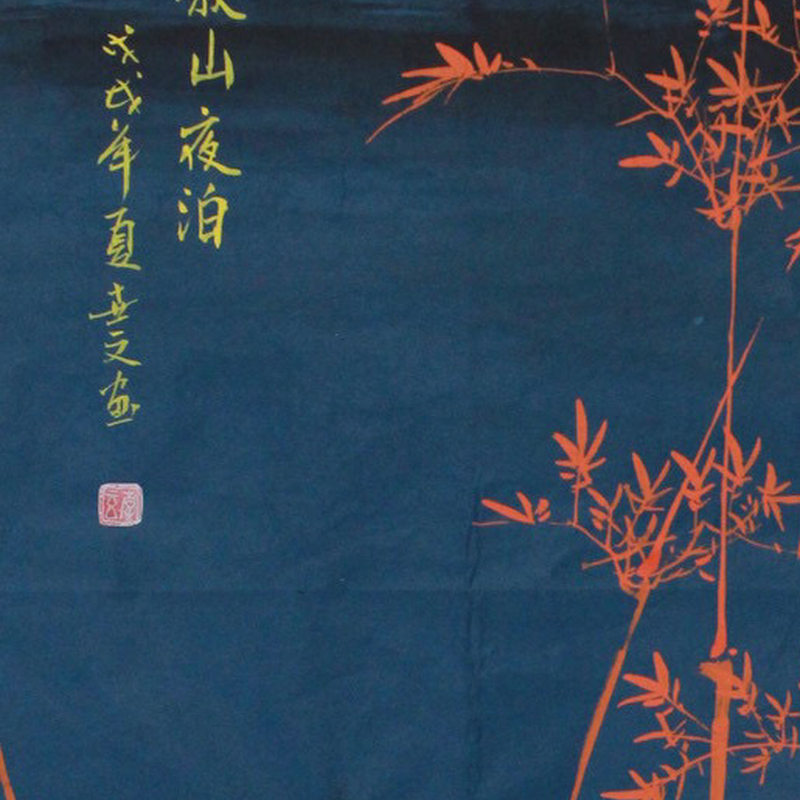 山夜泊
戊戌年夏喜文画